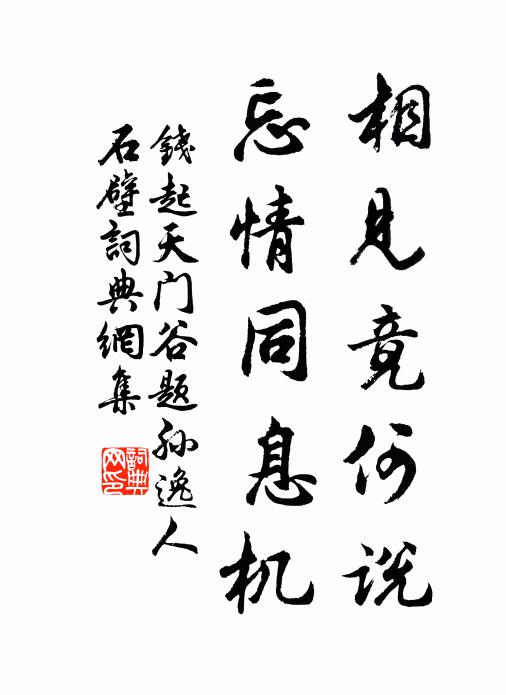 相见竟何说
忘情同息机
錢起天门谷题孙逸人
石壁詞典網集
詞典
网印